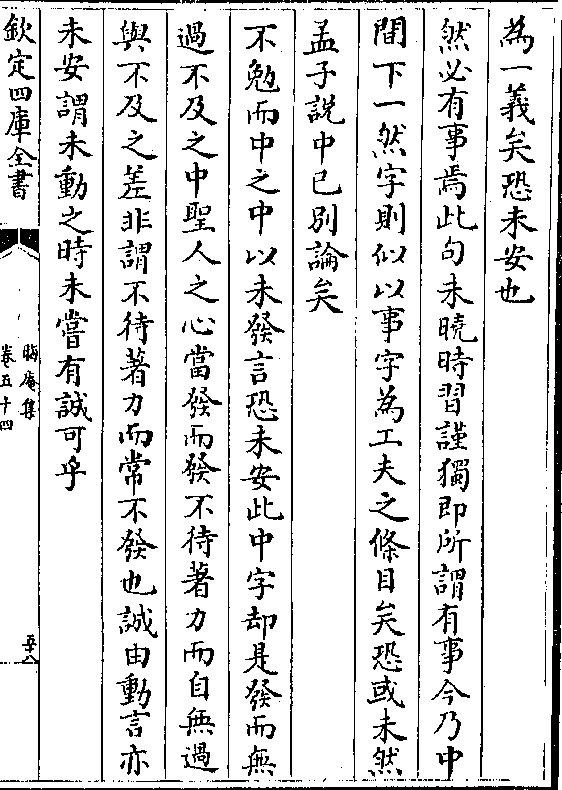 為一義矣恐未安也
然必有事焉此句未曉時習謹獨即所謂有事今乃中
間下一然字則似以事字為工夫之條目矣恐或未然
孟子說中已別論矣
不勉而中之中以未發言恐未安此中字却是發而無
過不及之中聖人之心當發而發不待著力而自無過
與不及之差非謂不待著力而常不發也誠由動言亦
未安謂未動之時未嘗有誠可乎
欽定四庫全書
晦庵集
卷五十四
五十八